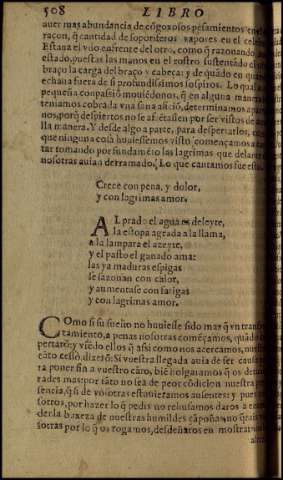 508 LIBRO
auer mas abundancia de cõgoxosos pesamientos en el
raçon, q̃ cantidad de soporiferos vapores en el celebro
Estaua el vno enfrente del otro, como q̃ razonando
estado, puestas las manos en el rostro sustentado el
braço la carga del braço y cabeça: y de quãdo en quã
echaua fuera de si profundissimos sospiros. Lo qual
pequeña conpassiõ mouiẽdonos, q̃ en alguna manera
teniamos cobrada vna sana aficiõ, determinamos a
nos, porq̃ despiertos no se afrẽtassen por ser vistos de
lla manera. Y desde algo a parte, para despertarlos,
que ninguna cosa huuiessemos visto començamos a
tar tomando por fundamẽto las lagrimas que delante
nosotras auian derramado. Lo que cantamos fue esto.
Crece con pena, y dolor,
y con lagrimas amor.
AL prado el agua es deleyte,
la estopa agrada a la llama,
a la lampara el azeyte,
y el pasto el ganado ama:
las ya maduras espigas
se sazonan con calor,
y aumentase con fatigas
y con lagrimas amor.
COmo si su sueño no huuiesse sido mas q̃ vn trans
tamiento, a penas nosotras començamos, quãdo
pertarõ; y viẽdo ellos q̃ assi como nos acercamos, nuestro
cãto cessò, dizẽ: Si vuestra llegada auia de ser causa
ra poner fin a vuestro cãto, biẽ holgaramos q̃ os
radas mas: por tãto no sea de peor cõdicion nuestra
sencia, q̃ si de vosotras estuuieramos ausentes: y pues
sotros, por hazer lo q̃ pedis no rehusamos daros a
der la baxeza de nuestras humildes çãpoñas, no q̃rais
sotras por lo q̃ os rogamos, desdeñaros en mostrar